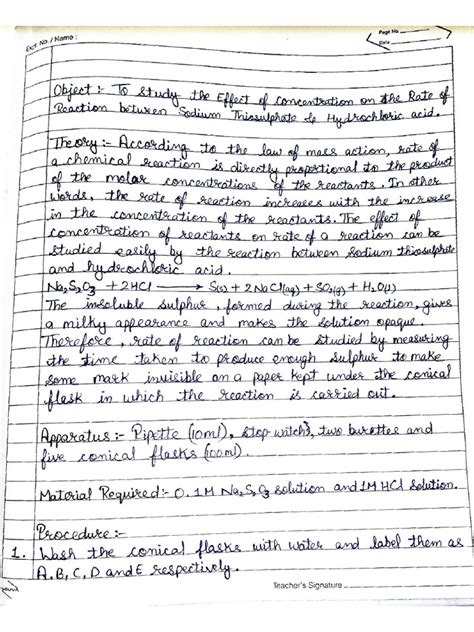 Expt. No. / Name :
Page No.
Date
Object :- To study the Effect of concentration on the Rate of
Reaction between Sodium Thiosulphate & Hydrochloric acid.
Theory:- According to the law of mass action, rate of
a chemical reaction is directly proportional to the product
of the molar concentrations of the reactants. In other
words, the rate of reaction increases with the increase
in the concentration of the reactants. The effect of
concentration of reactants on rate of a reaction can be
studied easily by the reaction between Sodium thiosulphate
and hydrochloric acid.
Na₂S₂O₃ + 2HCl ⟶ S(s) + 2NaCl(aq) + SO₂(g) + H₂O(l)
The insoluble sulphur, formed during the reaction, gives
a milky appearance and makes the solution opaque.
Therefore, rate of reaction can be studied by measuring
the time taken to produce enough sulphur to make
some mark invisible on a paper kept under the conical
flask in which the reaction is carried out.
Apparatus :- Pipette (10ml), stop watch, two burettes and
five conical flasks (100ml).
Material Required:- 0.1M Na₂S₂O₃ solution and 1M HCl solution.
Procedure :-
1. Wash the conical flasks with water and label them as
A, B, C, D and E respectively.
Teacher's Signature